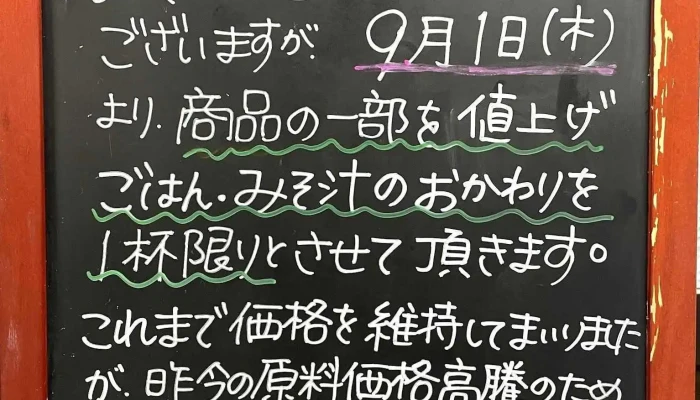 ございますが、 9月1日(木)
より、商品の一部を値上げ
ごはん・みそ汁のおかわりを
1杯限りとさせて頂きます。
これまで価格を維持してまいりました
が、昨今の原料価格高騰のため